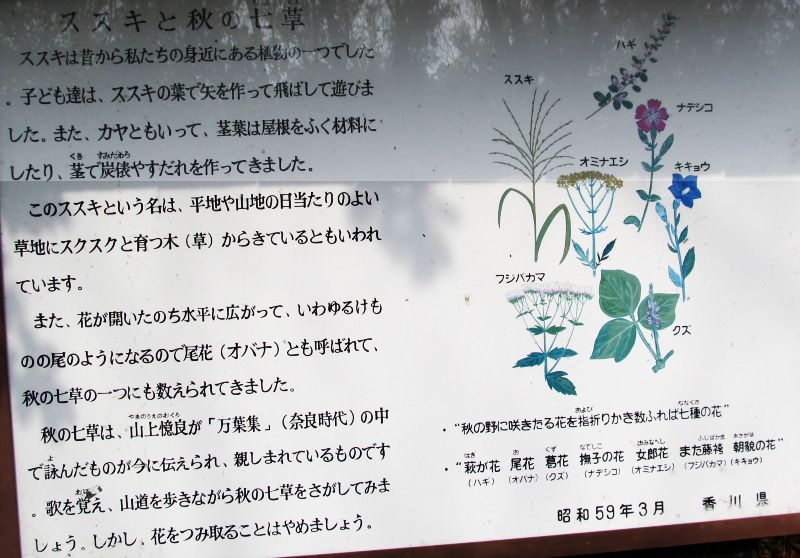 ススキと秋の七草
ススキは昔から私たちの身近にある植物の一つでした
。子ども達は、ススキの葉で矢を作って飛ばして遊びま
した。また、カヤともいって、茎葉は屋根をふく材料に
くき すみだわら
したり、茎で炭俵やすだれを作ってきました。
このススキという名は、平地や山地の日当たりのよい
草地にスクスクと育つ木（草）からきているともいわれ
ています。
また、花が開いたのち水平に広がって、いわゆるけも
のの尾のようになるので尾花（オバナ）とも呼ばれて、
秋の七草の一つにも数えられてきました。
やまのうえのおくら
秋の七草は、山上憶良が「万葉集」（奈良時代）の中
よ
で詠んだものが今に伝えられ、親しまれているものです
おぼ
。歌を覚え、山道を歩きながら秋の七草をさがしてみま
しょう。しかし、花をつみ取ることはやめましょう。
ハギ
ススキ
ナデシコ
オミナエシ
キキョウ
フジバカマ
クズ
および ななくさ
・“秋の野に咲きたる花を指折りかき数ふれば七種の花”
はぎ お くず なでしこ おみなへし ふじばかま あさがほ
・“萩が花 尾花 葛花 撫子の花 女郎花 また藤袴 朝貌の花”
（ハギ）（オバナ）（クズ）（ナデシコ）（オミナエシ）（フジバカマ）（キキョウ）
昭和59年3月 香川県